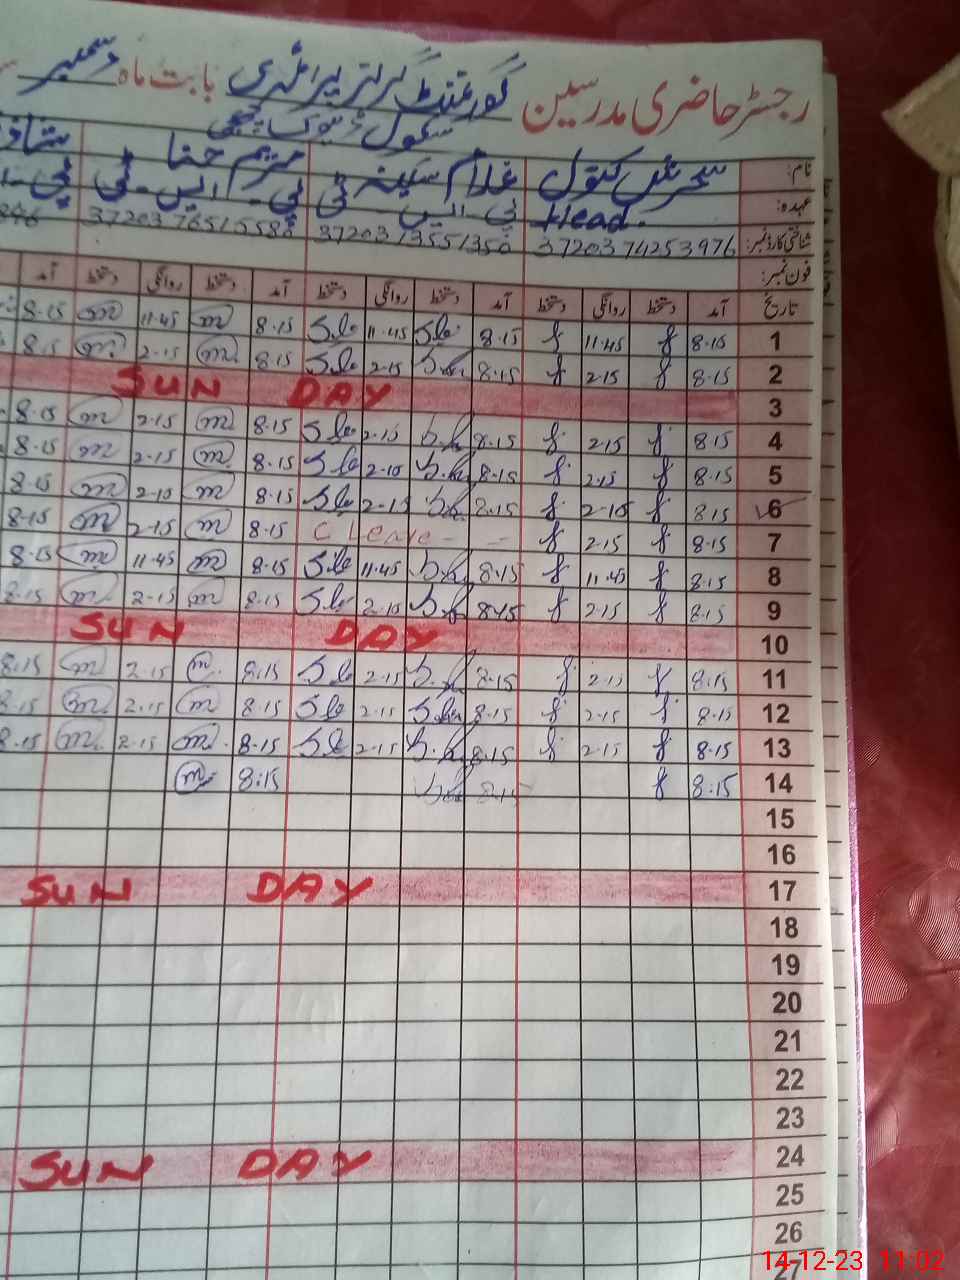 رجسٹر حاضری مدرسین گورنمنٹ گرلز پرائمری بابت ماہ دسمبر
سکول ڈھوک
نام: سحرش کنول غلام سکینہ مریم حنا
عہدہ: Head پی ایس ٹی پی ایس ٹی پی
شناختی کارڈ نمبر: 3720374253976 3720313551350 3720376515588
فون نمبر:
تاریخ آمد دستخط روانگی دستخط آمد دستخط روانگی دستخط آمد دستخط روانگی دستخط آمد
1 8.15 11.45 8.15 11.45 8.15 11.45 8.15
2 8.15 2.15 8.15 2.15 8.15 2.15 8.15
3 SUN DAY
4 8.15 2.15 8.15 2.15 8.15 2.15 8.15
5 8.15 2.15 8.15 2.10 8.15 2.15 8.15
6 8.15 2.10 8.15 2.15 8.15 2.10 8.15
7 8.15 2.15 C Leave - - 8.15 2.15 8.15
8 8.15 11.45 8.15 11.45 8.15 11.45 8.15
9 8.15 2.15 8.15 2.10 8.15 2.15 8.15
10 SUN DAY
11 8.15 2.15 8.15 2.15 8.15 2.15 8.15
12 8.15 2.15 8.15 2.15 8.15 2.15 8.15
13 8.15 2.15 8.15 2.15 8.15 2.15 8.15
14 8:15 8.15 8:15
15
16
17 SUN DAY
18
19
20
21
22
23
24 SUN DAY
25
26
27
14-12-23 11:02